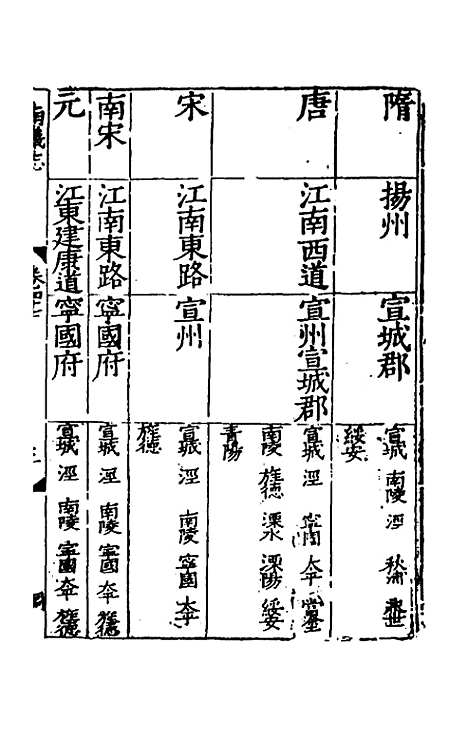 隋
揚州
宣城郡
宣城 南陵 涇 秋浦 永世
綏安
唐
江南西道
宣州宣城郡
宣城 涇 寧國 太平 當塗
南陵 旌德 溧水 溧陽 綏安
青陽
宋
江南東路
宣州
宣城 涇 南陵 寧國 太平
旌德
南宋
江南東路
寧國府
宣城 涇 南陵 寧國 太平 旌德
元
江東建康道
寧國府
宣城 涇 南陵 寧國 太平 旌德
南畿志